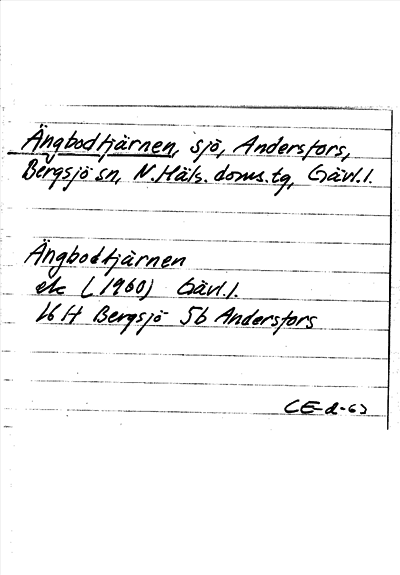 Ängbodtjärnen, sjö, Andersfors,
Bergsjö sn, N. Häls. doms. tg, Gävl. l.
Ängbodtjärnen
ek (1960) Gävl. l.
16 H Bergsjö 5b Andersfors
CE-d-63